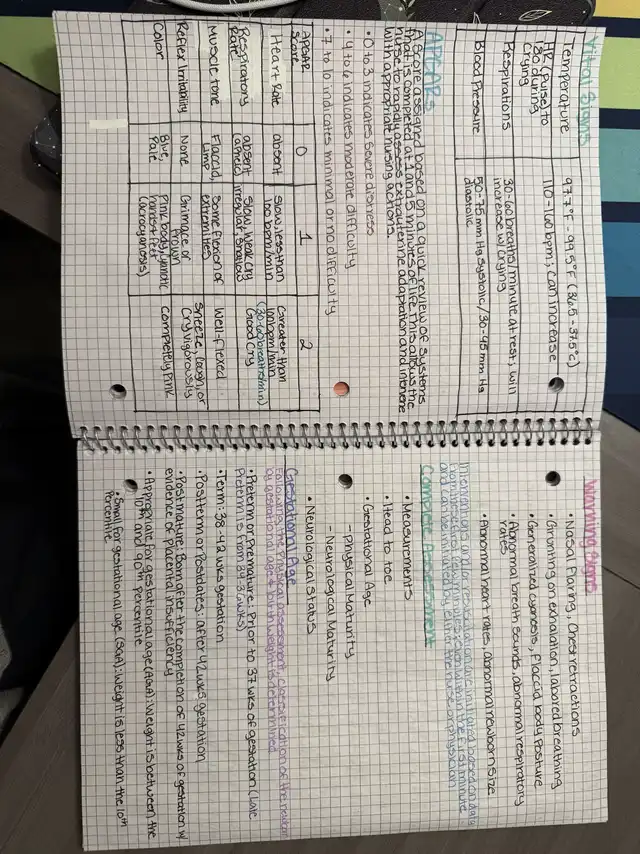 Vital Signs
Temperature 97.7°F - 99.5°F (36.5 - 37.5°C)
HR (Pulse) to 110-160bpm; can increase
180 during
crying
Respirations 30-60 breaths/minute at rest; will
increase w/ crying
Blood Pressure 50-75 mm Hg systolic / 30-45 mm Hg
diastolic
APGARs
A score assigned based on a quick review of systems
that is completed at 1 and 5 minutes of life. This allows the
nurse to rapidly assess extrauterine adaptation and intervene
with appropriate nursing actions.
• 0 to 3 indicates severe distress
• 4 to 6 indicates moderate difficulty
• 7 to 10 indicates minimal or no difficulty
APGAR Score 0 1 2
Heart Rate absent Slow, less than 100 bpm/min Greater than 100bpm/min
Respiratory Rate absent (apnea) Slow, weak cry irregular shallow (30-60) breaths/min Good Cry
Muscle tone Flaccid, Limp Some flexion of extremities Well-flexed
Reflex Irritability None Grimace or Frown Sneeze, cough, or Cry vigorously
Color Blue, Pale Pink body, hands + feet (acrocyanosis) completely pink
Warning Signs
• Nasal Flaring, Chest retractions
• Grunting on exhalation, labored breathing
• Generalized cyanosis, Flaccid body posture
• Abnormal breath sounds, abnormal respiratory
rates
• Abnormal heart rates, abnormal newborn size
Interventions and/or resuscitation are initiated based on data
from these first few minutes; even within the first minute
and can be initiated by either the nurse or physician
Complete Assessment
• Measurements
• Head to toe
• Gestational Age
- Physical Maturity
- Neurological Maturity
• Neurological status
Gestational Age
Following the physical assessment, classification of the newborn
by gestational age + birth weight is determined
• Preterm or Premature: Prior to 37 wks of gestation (Late
Preterm is from 34-36 wks)
• Term: 38-42 wks gestation
• Postterm or Postdates: after 42 wks gestation
• Postmature: Born after the completion of 42 wks of gestation w/
evidence of placental insufficiency
• Appropriate for gestational age (AGA): Weight is between the
10th and 90th percentile
• Small for gestational age (SGA): Weight is less than the 10th
percentile